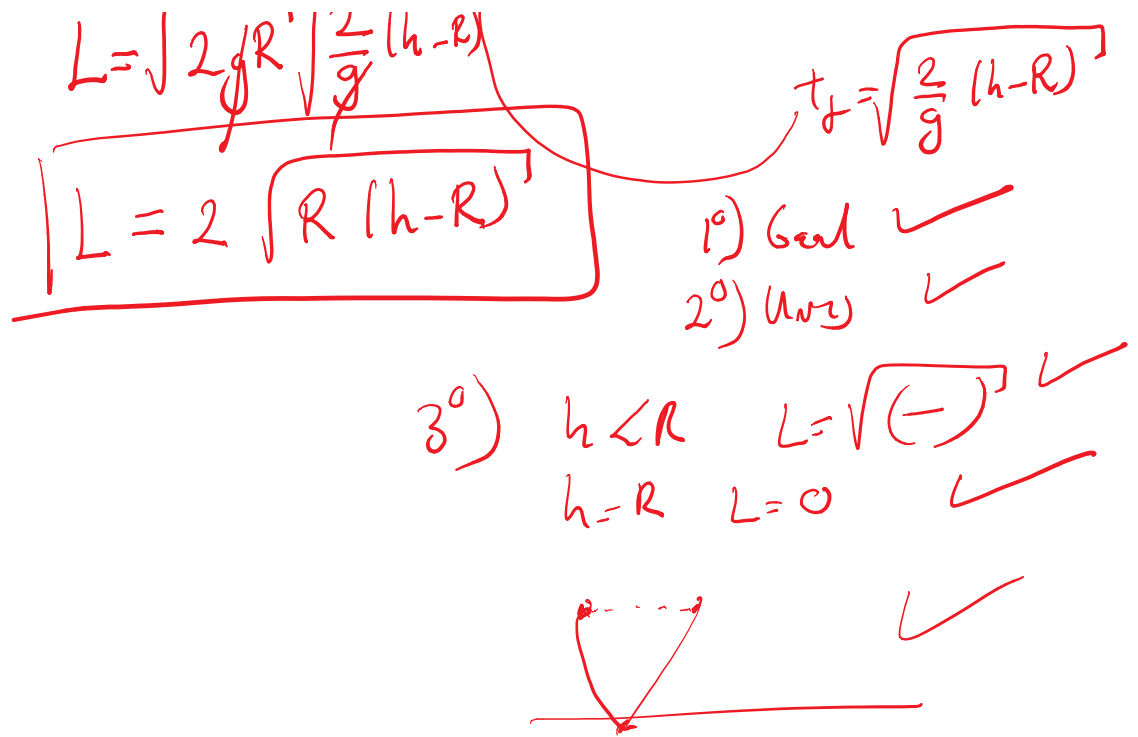 L = √2gR √(2/g (h-R))
t_f = √(2/g (h-R))
L = 2 √(R (h-R))
1º) Goal ✓
2º) Units ✓
3º) h < R L = √(-) ✓
h = R L = 0 ✓